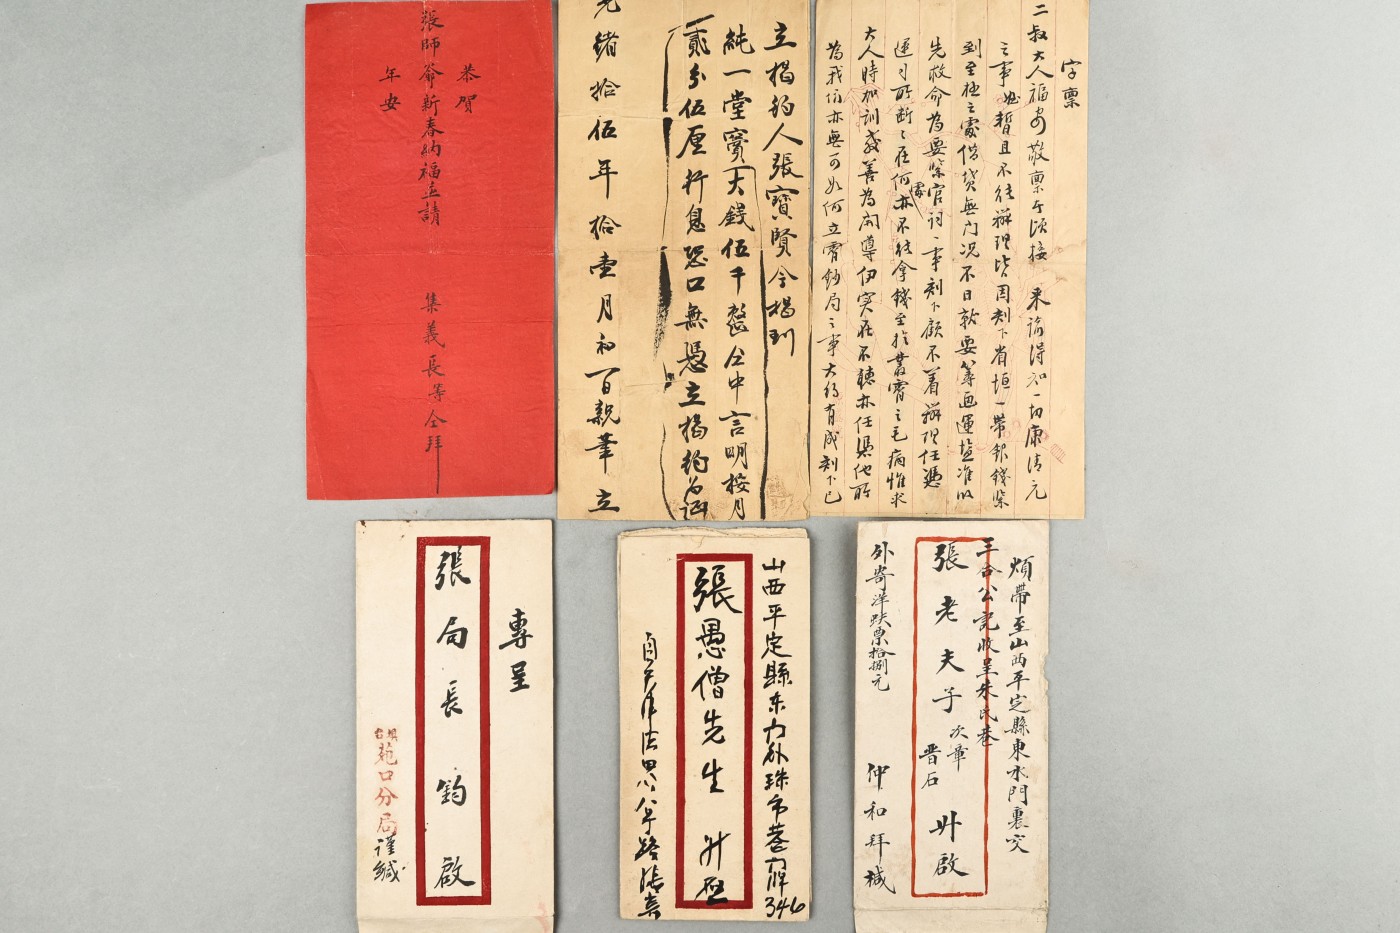 恭賀
張師爺新春納福並請
年安
集義長等仝拜
立揭約人張寶賢今揭到
純一堂寶大錢伍千整仝中言明按月
貳分伍厘行息恐口無憑立揭約為証
光緒拾伍年拾壹月初一日親筆立
字稟
二叔大人福安敬稟者頃接來諭得知一切康清元
之事暫且不往辦理皆因刻下省垣一帶銀錢緊
到至極之處借貸無門况不日就要籌画運鹽准以
先救命為要緊官詞一事刻下顧不着辦理任憑
運司所斷之在何處亦不往拿錢至於叢霄之毛病惟求
大人時加訓戒善為開導伊实在不聽亦任憑他所
為我們亦無可如何立霄鈔局之事大約有成刻下已
專呈
張局長鈞啟
苑口分局謹緘
山西平定縣东门外珠市巷门牌346
張愚僧先生升啟
煩帶至山西平定縣東水門裏交
三合公記收呈朱氏巷
張老夫子次章晋石升啟
外寄洋鈇票拾捌元
仲和拜椷